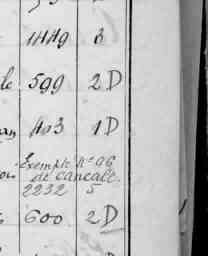 1449 2
le 599 2 D
an 403 1 D
Exempté Nº 96
de Cancale
2232 5
600 2 D